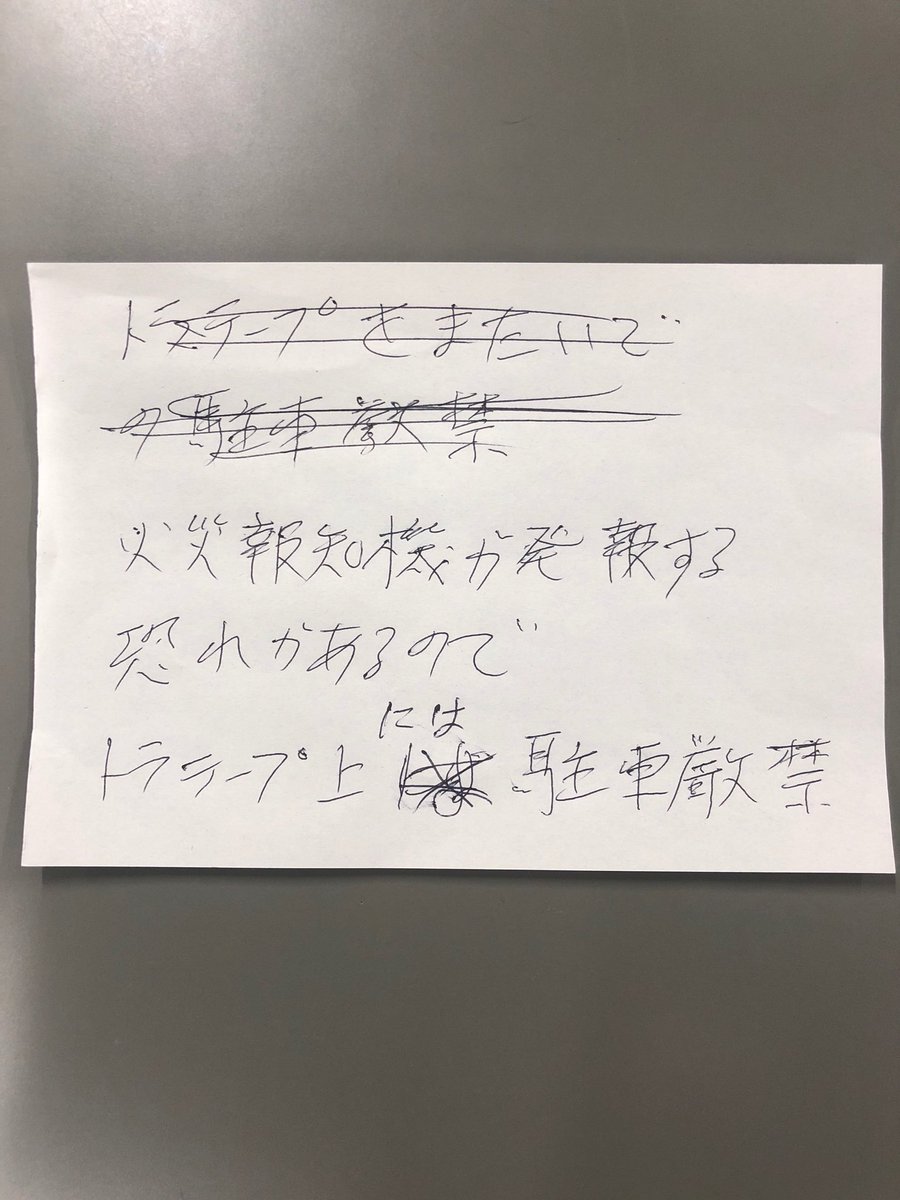 トラテープをまたいで
の駐車厳禁
火災報知機が発報する
恐れがあるので
トラテープ上には駐車厳禁